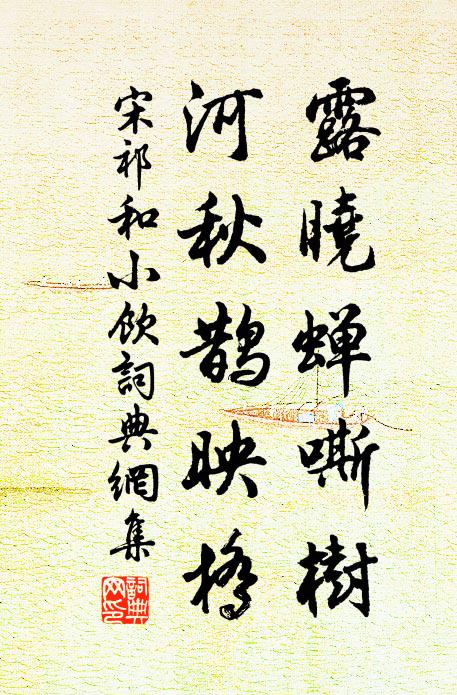 露曉蝉嘶樹
河秋鵲映橋
宋祁和小飲詞典網集
詞典网印